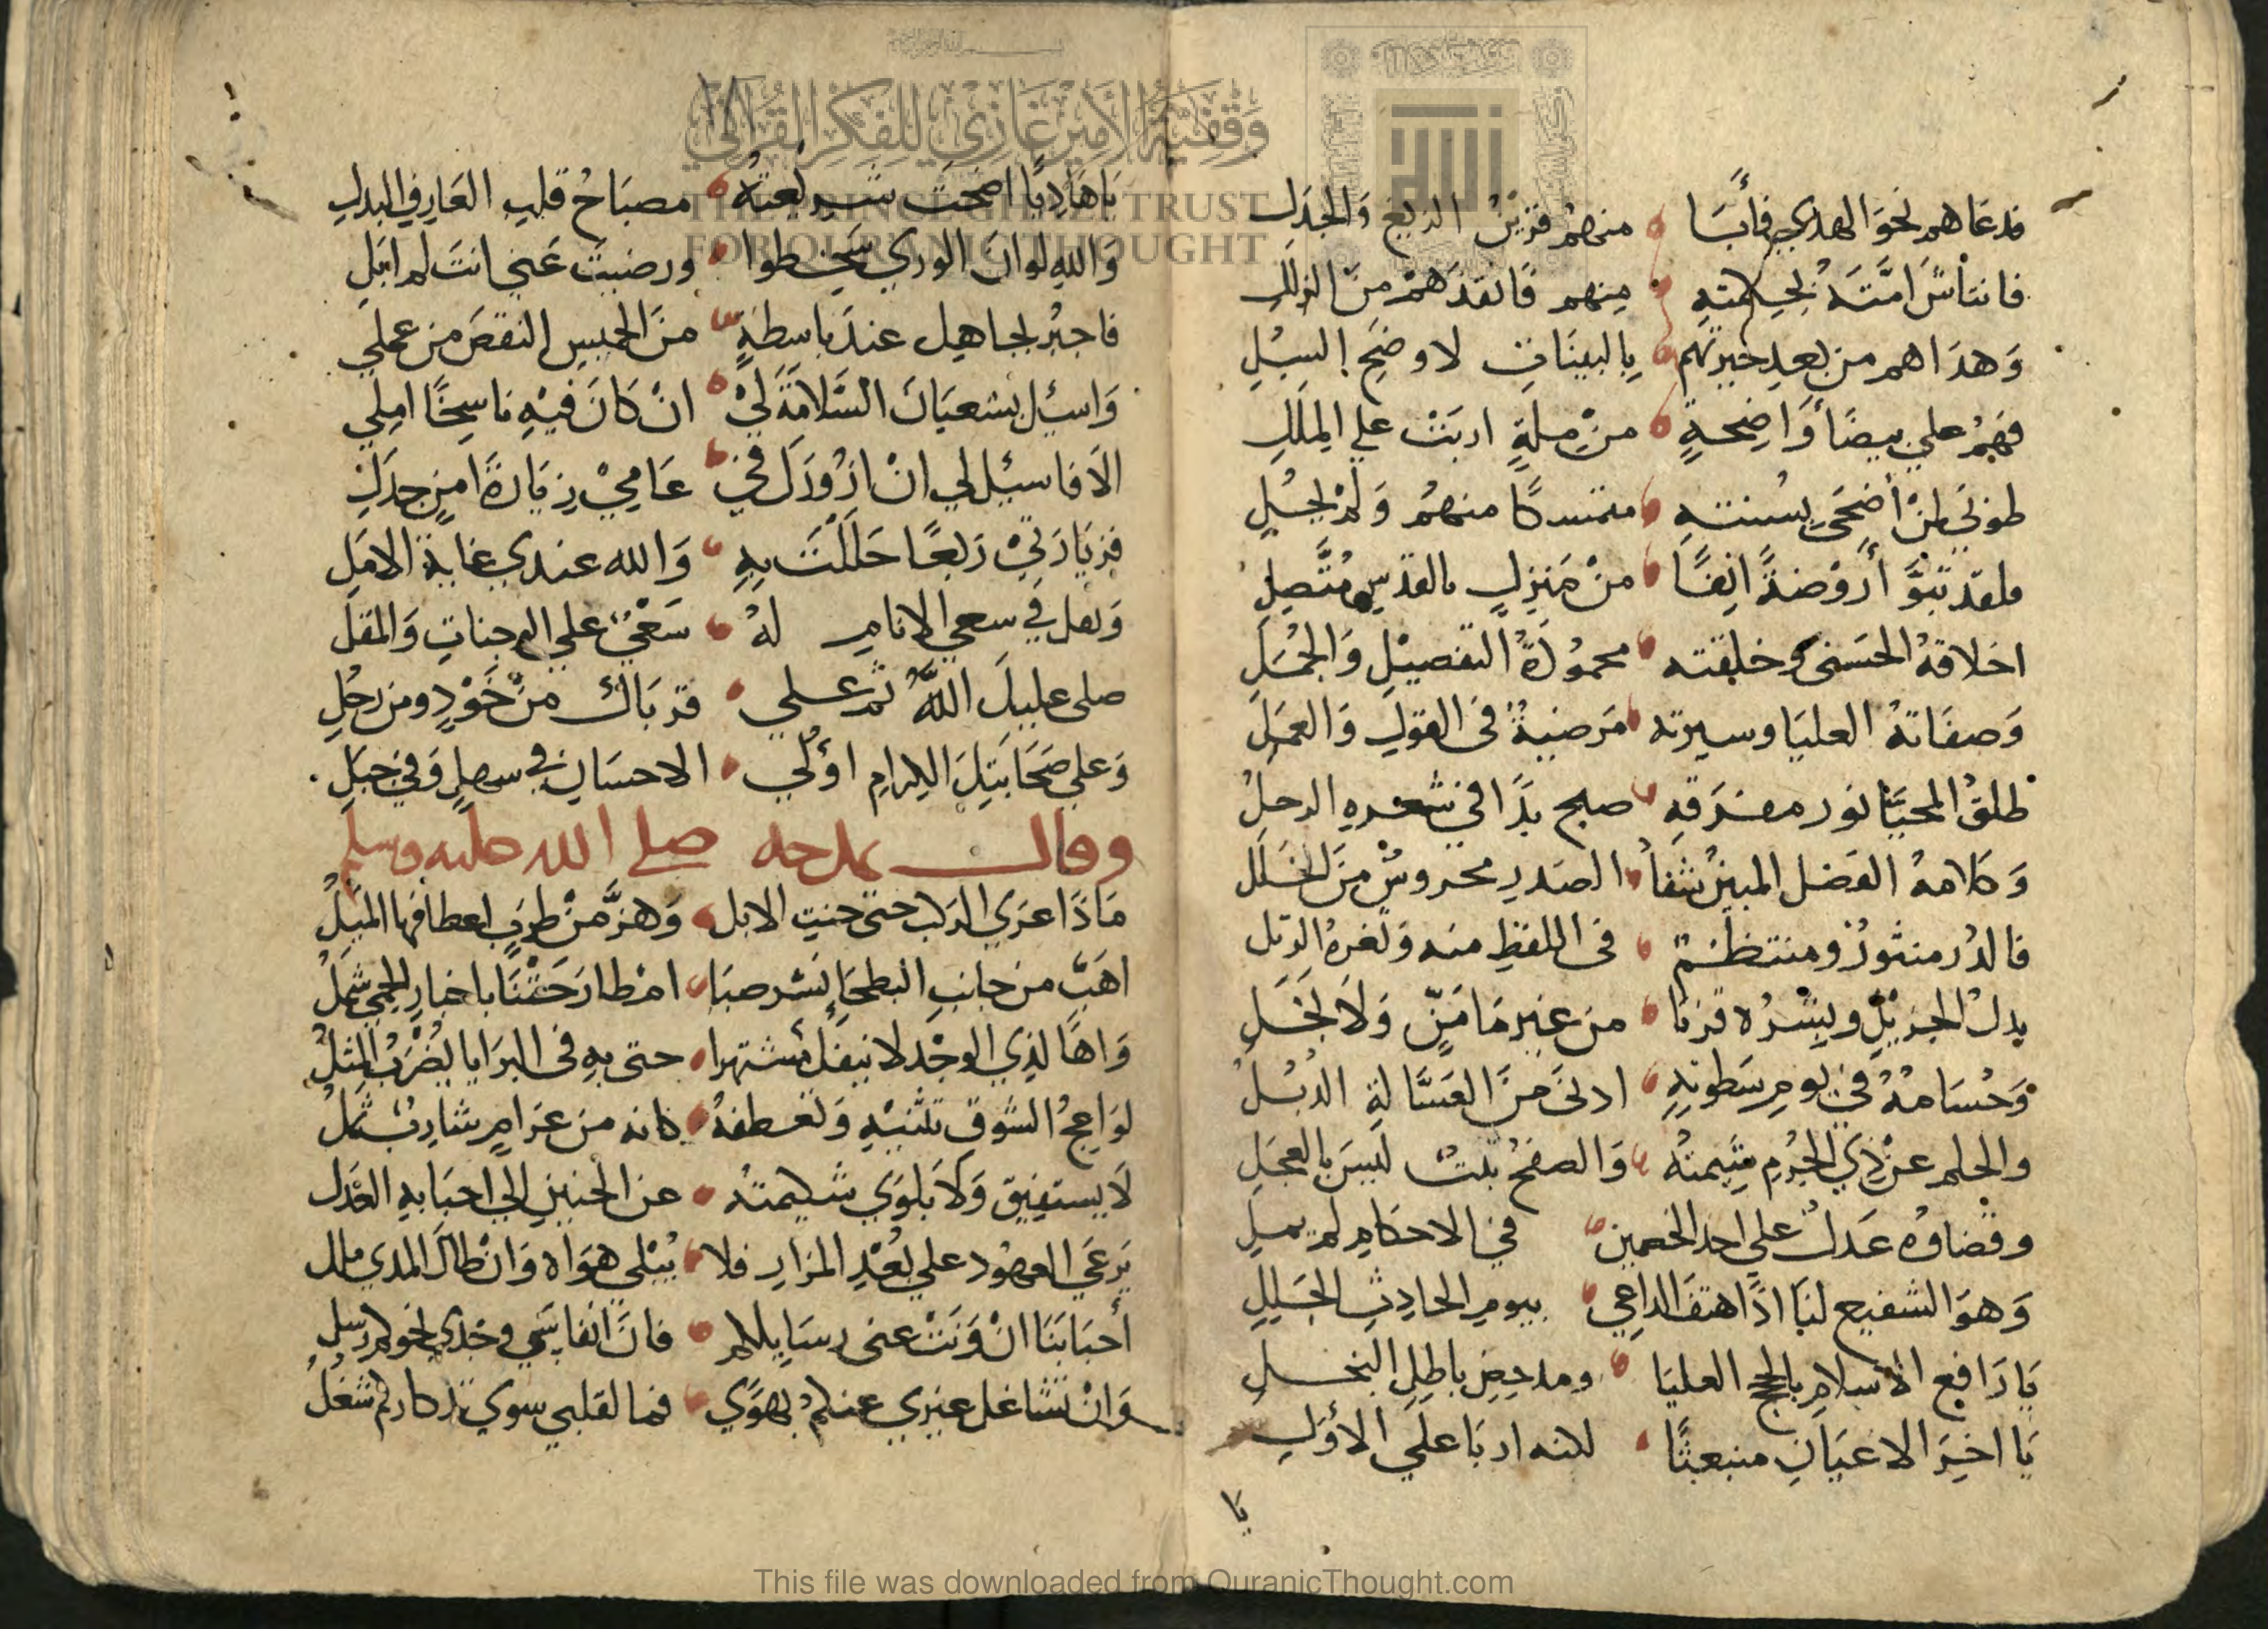 فدعاهم نحو الهدي فأبا منهم قرين الزيغ والجدل
فانتأش امته بحكمته منهم فانقذهم من الزلل
وهداهم من بعد حيرتهم بالبينات لاوضح السبل
فهم علي بيضأ واضحة من ملة اربت علي الملل
طوبي لمن أضحى بسنته متمسكا منهم ولم يحل
فلقد تبوّأ روضة انفا من منزل بالقدس متصل
اخلاقه الحسنى وخليقته محمودة التفصيل والجمل
وصفاته العليا وسيرته مرضية فى القول والعمل
طلق المحيا نور مفرقه صبح بدا في شعره الرجل
وكلامه الفضل المبين شفأ الصدر محروس من الخلل
فالدر منثور ومنتظم فى اللفظ منه وثغره الرتل
يدل الجزيل وبشره قرنا من غير ما منّ ولا بخل
وحسامه في يوم سطوته ادنى من العسالة الذبل
والحلم عن ذي الجرم شيمته والصفح بلت ليس بالعجل
وقضاوه عدل علي احد الخصمين في الاحكام لم يمل
وهو الشفيع لنا اذا هتف الداعي بيوم الحادث الجلل
يا رافع الاسلام بالحجج العليا ومدحض باطل النحل
يا اخير الاعيان منبعثا لكنه اربا علي الأول
يا
يا هاديا اضحت شريعته مصباح قلب العارف البدل
والله لو ان الوري سخطوا ورضيت عني انت لم ابل
فاجبر بجاهك عند باسطه من الخميس النقص من عملي
واسئل بشعبان السلامة لي ان كان فيه ناسخا املي
الا فاسئل لي ان ازورك في عامي زيارة امن جدل
فزيارتي ربعا حللت به والله عندي غاية الامل
ويقل في سعي الانام له سعي علي الوجنات والمقل
صلى عليك الله ثم علي قرباك من خود ومن رجل
وعلي صحابتك الكرام اولي الاحسان في سهل وفي جبل
وقال يمدحه صلى الله عليه وسلم
ماذا عري الركب حتى حنت الابل وهز من طرف اعطافها الميل
اهب من جانب البطحأ نشر صبا ام طارحتنا باخبار الحمي شمل
واها لذي الوجد لا ينفك مشتهرا حتى به فى البرايا يضرب المثل
لواعج الشوق تثنيه وتعطفه كانه من غرام شارب ثمل
لا يستفيق ولا يلوي شكيمته عن الحنين الي احبابه العذل
يرعي العهود علي بعد المزار فلا يبلى هواه وان طال المدي ملل
أحبابنا ان ونت عني رسايلكم فان انفاسي وجدي نحوكم رسل
وان تشاغل غيري عنكم بهوي فما لقلبي سوي تذكاركم شغل
وقفية الأمير غازي للفكر القرآني
THE PRINCE GHAZI TRUST
FOR QURANIC THOUGHT
This file was downloaded from QuranicThought.com